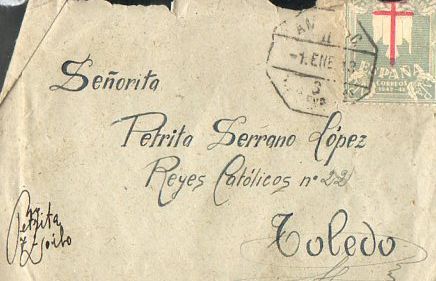 -1.ENE
ESPAÑA
CORREOS
Señorita
Petrita Serrano López
Reyes Católicos nº 22
Toledo
Petrita